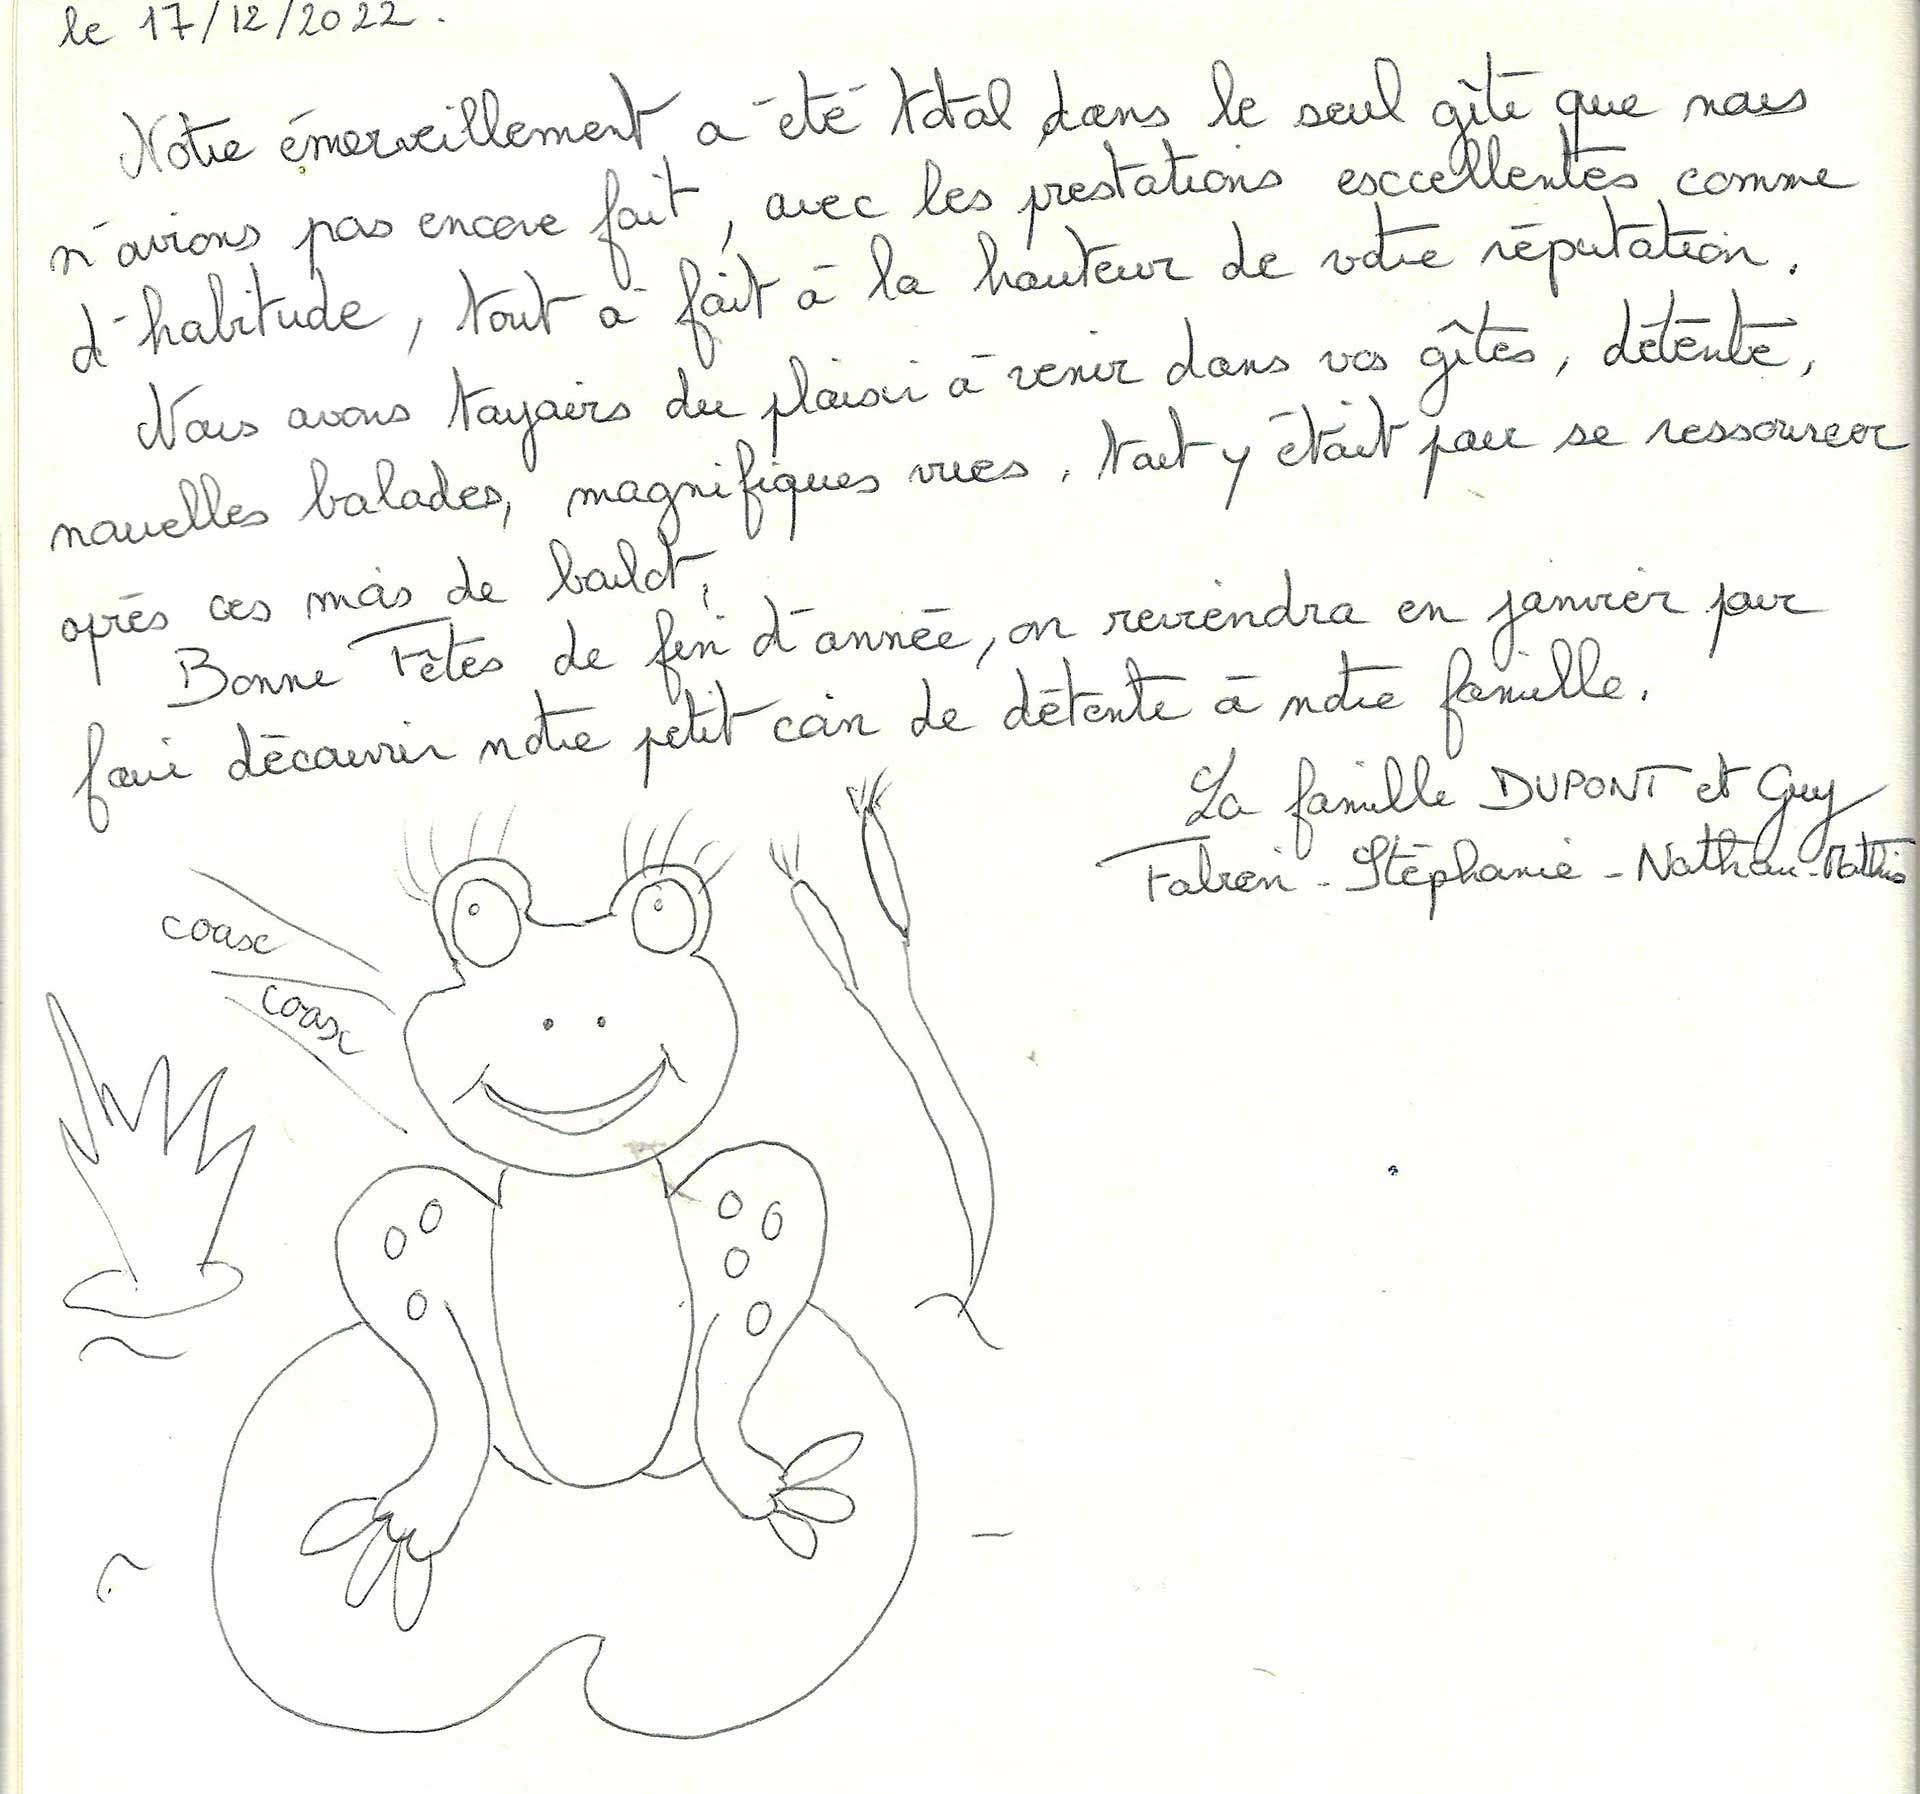 le 17/12/2022.
Notre émerveillement a été total dans le seul gîte que nous
n'avions pas encore fait, avec les prestations excellentes comme
d'habitude, tout à fait à la hauteur de votre réputation.
Nous avons toujours du plaisir à venir dans vos gîtes, détente,
nouvelles balades, magnifiques vues. tout y était pour se ressourcer
après ces mois de boulot.
Bonne Fêtes de fin d'année, on reviendra en janvier pour
faire découvrir notre petit coin de détente à notre famille.
La famille DUPONT et Guy
Fabien - Stéphanie - Nathan - Mathis
coax
coax